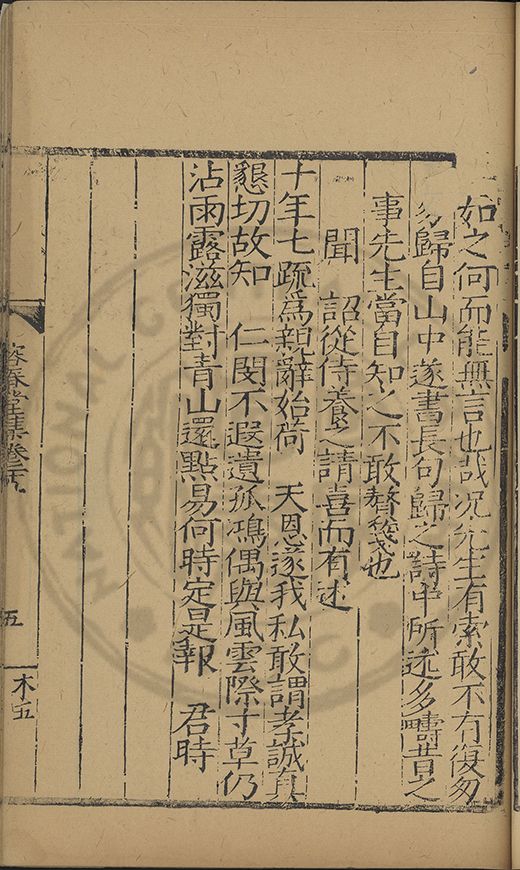 如之何而能無言也哉况先生有索敢不有復匆
匆歸自山中遂書長句歸之詩中所述多疇昔之
事先生當自知之不敢贅箋也
聞 詔從侍養之請喜而有述
十年七疏爲親辭始荷 天恩遂我私敢謂孝誠真
懇切故知 仁閔不遐遺孤鴻偶與風雲際寸草仍
沾雨露滋獨對青山還點易何時定是報 君時
容春堂集卷
五
木五